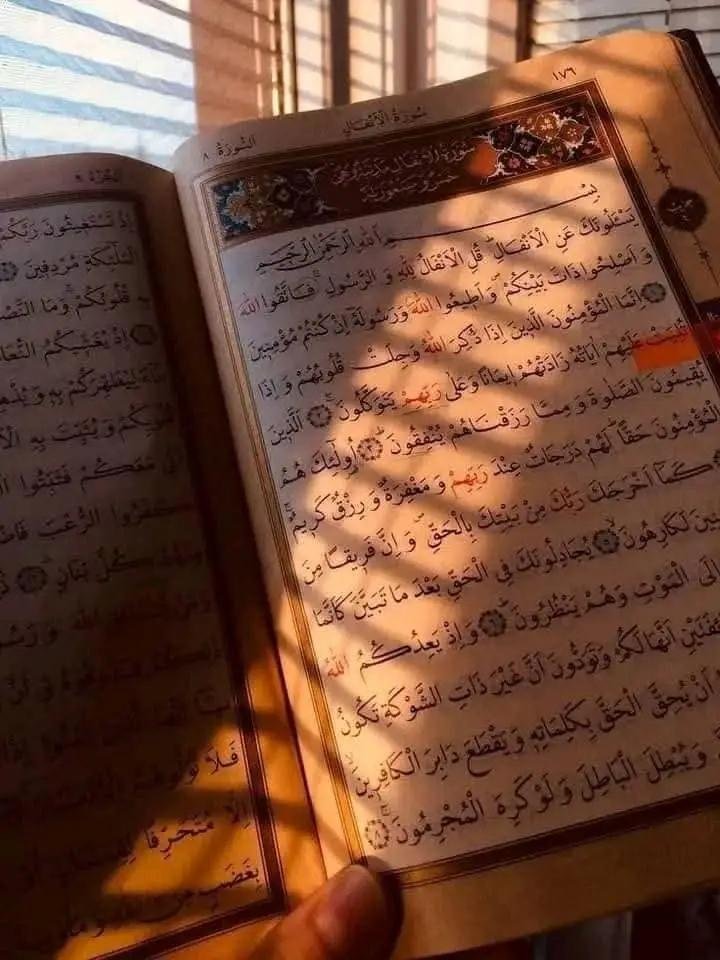 ١٧٦
سُورَةُ الْأَنْفَالِ
السُّورَة ٨
سُورَةُ الْأَنْفَالِ مَدَنِيَّةٌ وَهِيَ
خَمْسٌ وَسَبْعُونَ آيَةً
بِسْمِ اللهِ الرَّحْمٰنِ الرَّحِيمِ
يَسْـَٔلُونَكَ عَنِ الْأَنْفَالِ قُلِ الْأَنْفَالُ لِلهِ وَ الرَّسُولِ فَاتَّقُوا اللهَ
وَ اَصْلِحُوا ذَاتَ بَيْنِكُمْ وَ اَطِيعُوا اللهَ وَرَسُولَهُ اِنْ كُنْتُمْ مُؤْمِنِينَ
اِنَّمَا الْمُؤْمِنُونَ الَّذِينَ اِذَا ذُكِرَ اللهُ وَجِلَتْ قُلُوبُهُمْ وَ اِذَا
تُلِيَتْ عَلَيْهِمْ اٰيَاتُهُ زَادَتْهُمْ اِيمَانًا وَعَلٰى رَبِّهِمْ يَتَوَكَّلُونَ الَّذِينَ
يُقِيمُونَ الصَّلٰوةَ وَ مِمَّا رَزَقْنَاهُمْ يُنْفِقُونَ اُولٰئِكَ هُمُ
الْمُؤْمِنُونَ حَقًّا لَهُمْ دَرَجَاتٌ عِنْدَ رَبِّهِمْ وَ مَغْفِرَةٌ وَ رِزْقٌ كَرِيمٌ
كَمَا اَخْرَجَكَ رَبُّكَ مِنْ بَيْتِكَ بِالْحَقِّ وَ اِنَّ فَرِيقًا مِنَ
لَكَارِهُونَ يُجَادِلُونَكَ فِي الْحَقِّ بَعْدَ مَا تَبَيَّنَ كَاَنَّمَا
اِلَى الْمَوْتِ وَهُمْ يَنْظُرُونَ وَ اِذْ يَعِدُكُمُ اللهُ
اَنَّهَا لَكُمْ وَتَوَدُّونَ اَنَّ غَيْرَ ذَاتِ الشَّوْكَةِ تَكُونُ
اَنْ يُحِقَّ الْحَقَّ بِكَلِمَاتِهِ وَ يَقْطَعَ دَابِرَ الْكَافِرِينَ
وَ يُبْطِلَ الْبَاطِلَ وَ لَوْ كَرِهَ الْمُجْرِمُونَ
اِذْ تَسْتَغِيثُونَ رَبَّكُمْ
الْمَلٰٓئِكَةِ مُرْدِفِينَ
بِهِ قُلُوبُكُمْ وَمَا النَّصْرُ
اِذْ يُغَشِّيكُمُ النُّعَاسَ
لِيُطَهِّرَكُمْ بِهِ وَ يُذْهِبَ
قُلُوبِكُمْ وَ يُثَبِّتَ بِهِ
مَعَكُمْ فَثَبِّتُوا
كَفَرُوا الرُّعْبَ
كُلَّ بَنَانٍ
اِلَّا مُتَحَرِّفًا
بِغَضَبٍ